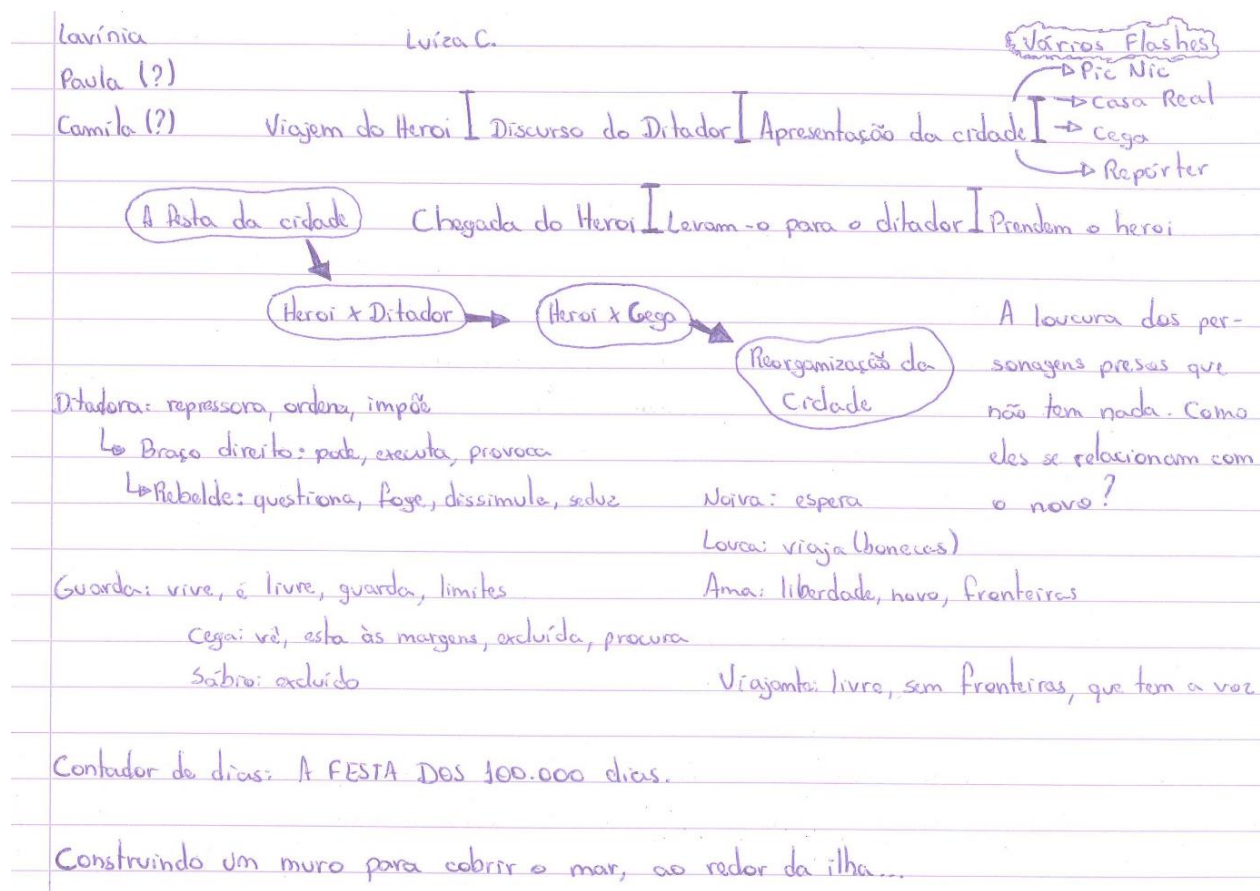 Lavínia Luíza C. Vários Flashes
Paula (?) Pic Nic
Camila (?) Viajem do Heroi I Discurso do Ditador I Apresentação da cidade I Casa Real
Cega
Repórter
A festa da cidade Chegada do Heroi I Levam-o para o ditador I Prendem o heroi
Heroi x Ditador Heroi x Cega A loucura dos per-
Reorganização da sonagens presas que
Ditadora: repressora, ordena, impõe Cidade não tem nada. Como
Braço direito: pode, executa, provoca eles se relacionam com
Rebelde: questiona, foge, dissimula, seduz Noiva: espera o novo?
Louca: viaja (bonecas)
Guarda: vive, é livre, guarda, limites Ama: liberdade, novo, fronteiras
Cega: vê, esta às margens, excluída, procura
Sábio: excluído Viajante: livre, sem fronteiras, que tem a voz
Contador de dias: A FESTA DOS 100.000 dias.
Construindo um muro para cobrir o mar, ao redor da ilha...